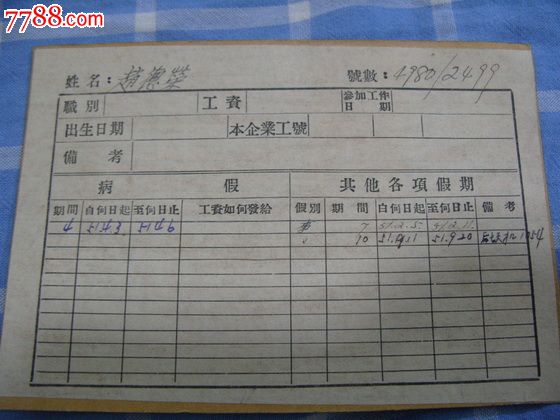 7788.com
中国收藏热线
姓名：趙德榮 號數：4980/2499
職別 工資 參加工作日期
出生日期 本企業工號
備考
病 假 其他各項假期
期間 自何日起 至何日止 工資如何發給 假別 期間 自何日起 至何日止 備考
4 51.4.3 51.4.6 事 7 51.2.5 51.2.11
〃 10 51.9.11 51.9.20